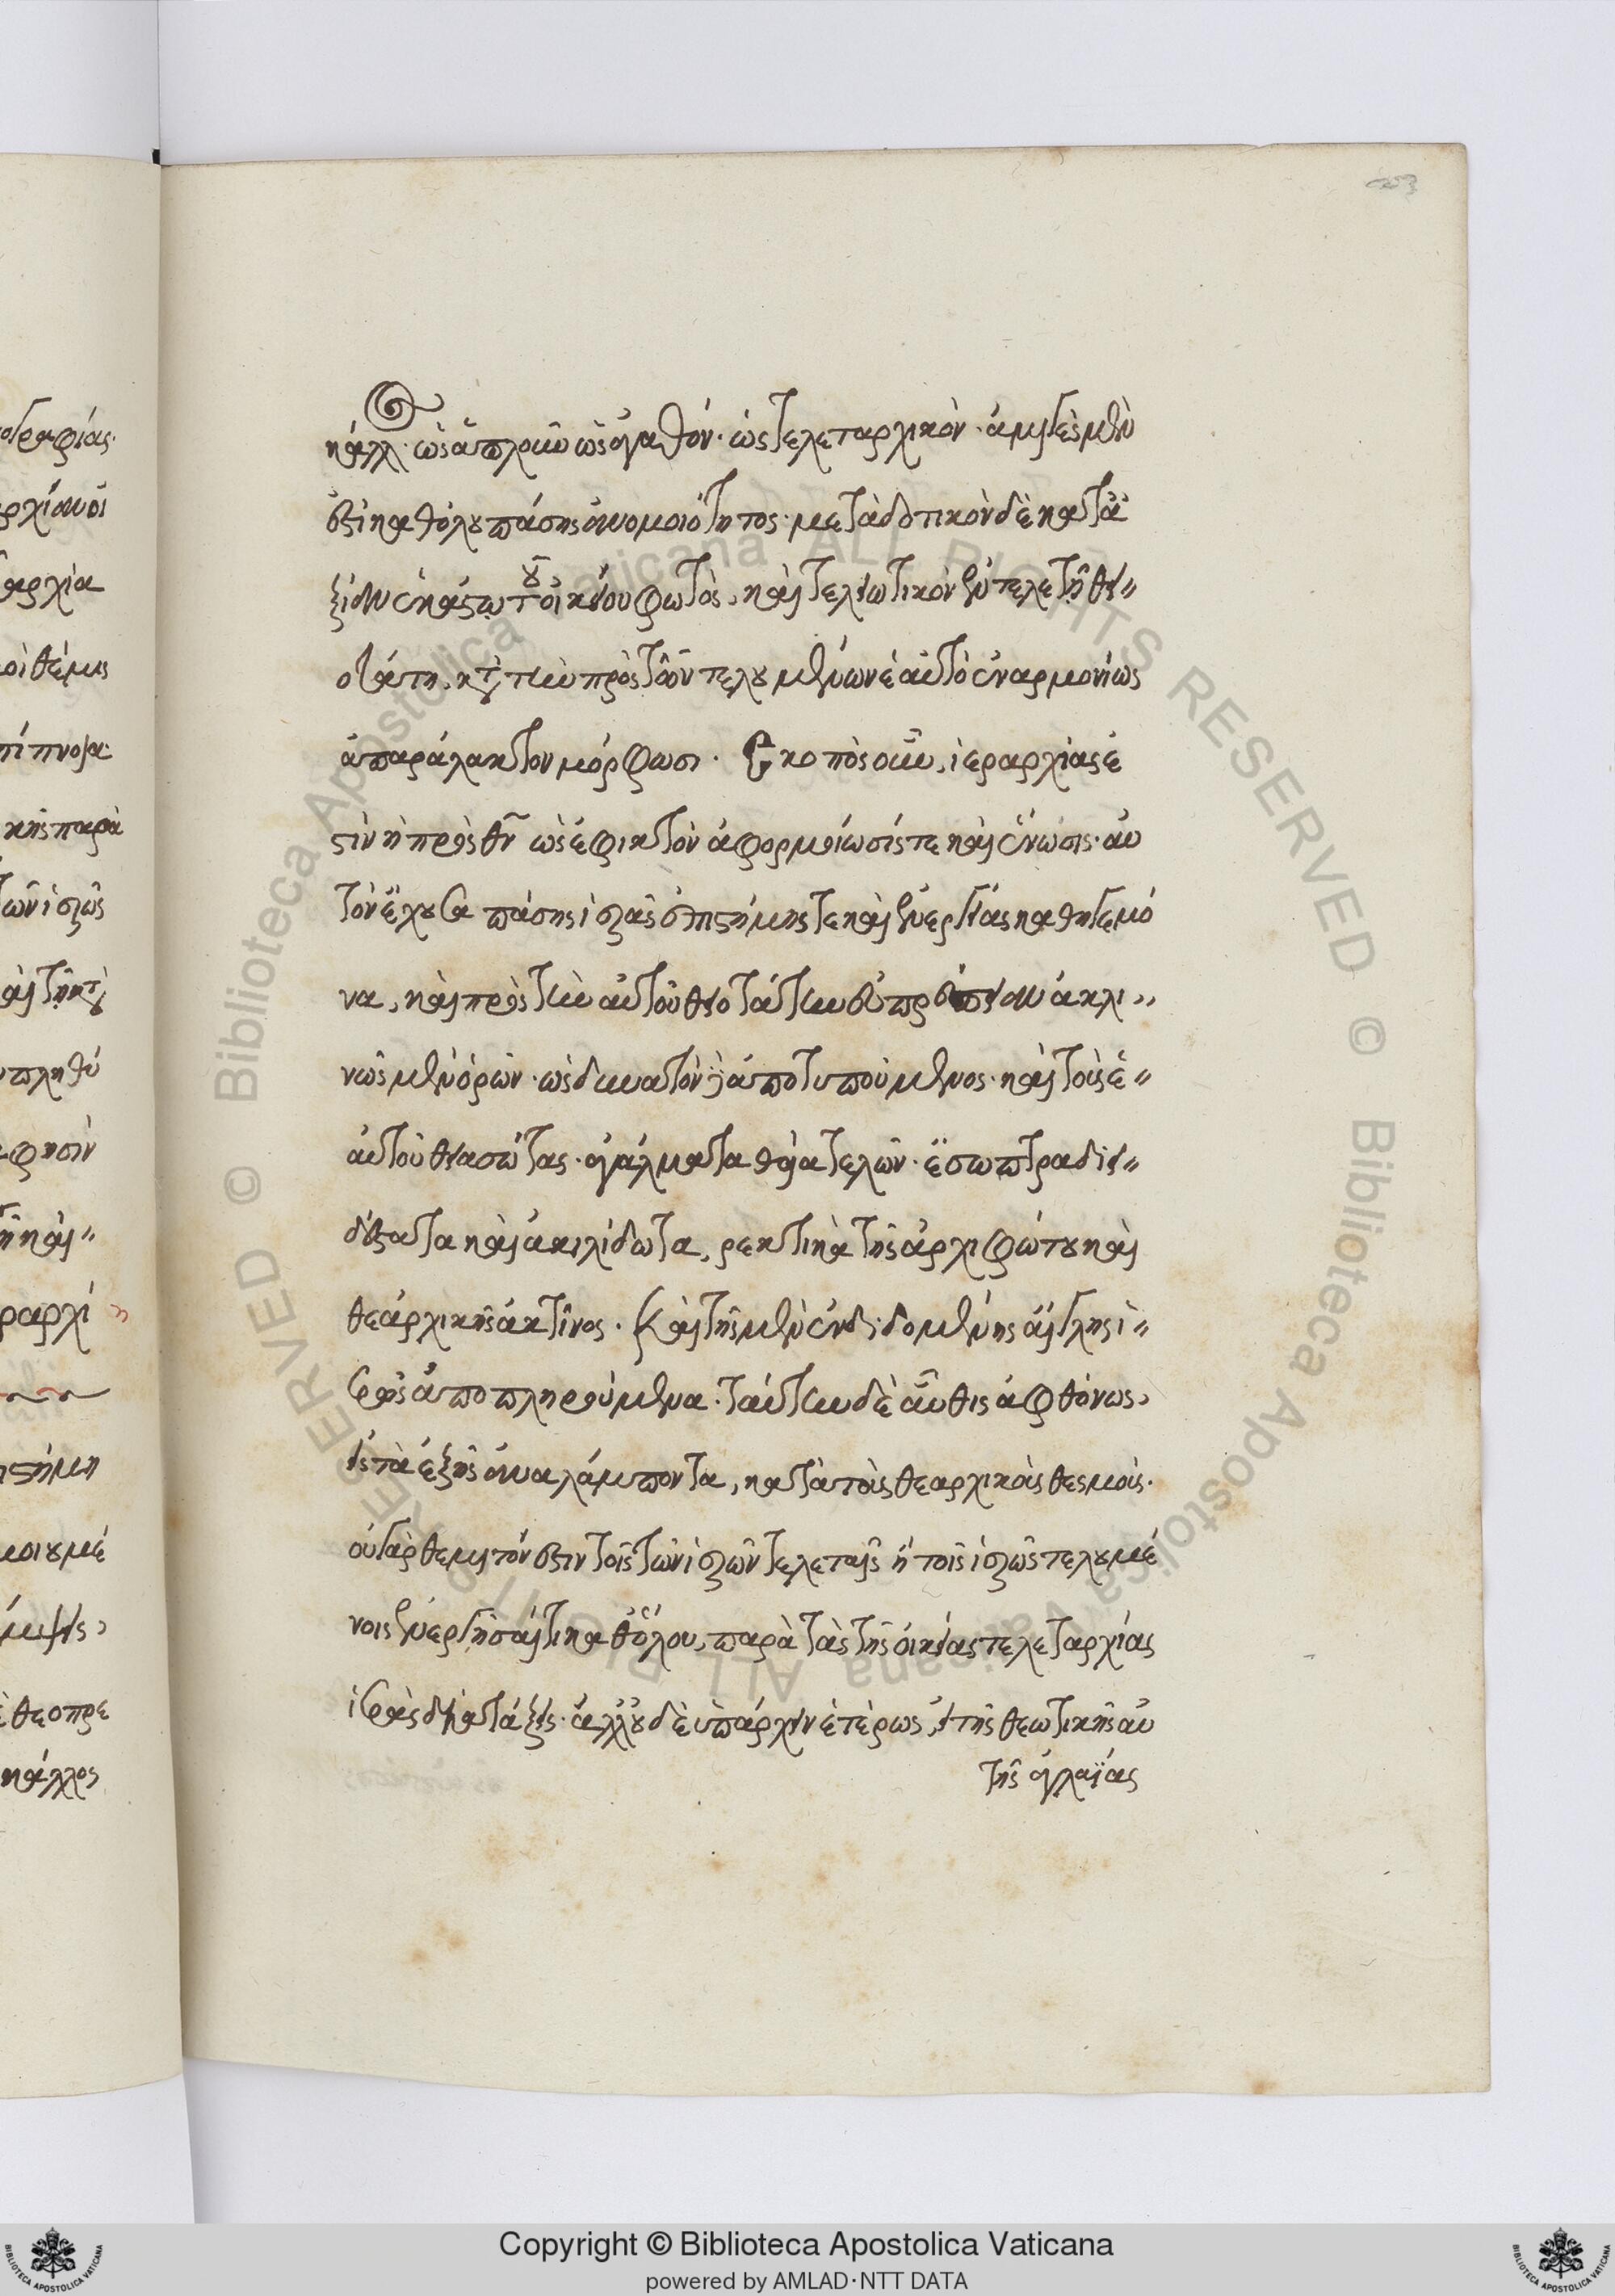 κάλλος ὡς ἁπλοῦν ὡς ἀγαθόν· ὡς τελεταρχικὸν· ἀμιγὲς μὲν
ἐστὶ καθόλου πάσης ἀνομοιότητος· μεταδοτικὸν δὲ κατ' ἀ
ξίαν ἑκάστῳ τοῦ οἰκείου φωτὸς, καὶ τελειωτικὸν ἐν τελετῇ θει〃
οτάτῃ, κατὰ τὴν πρὸς τὸν τελουμένων ἑαυτὸ ἐναρμονίως
ἀπαράλακτον μόρφωσι· Σκοπὸς οὖν, ἱεραρχίας ἐ
στὶν ἡ πρὸς θν ὡς ἐφικτὸν ἀφομοίωσίς τε καὶ ἕνωσις· αὐ
τὸν ἔχουσα πάσης ἱερᾶς ἐπιστήμης τε καὶ ἐνεργείας καθηγεμό
να, καὶ πρὸς τὴν αὐτοῦ θειοτάτην εὐπρέπειαν ἀκλι〃
νῶς μὲν ὁρῶν· ὡς δυνατὸν δὲ ἀποτυπούμενος· καὶ τοὺς ἑ〃
αυτοῦ θιασώτας· ἀγάλματα θεῖα τελῶν· ἔσωπτρα διει〃
δέστατα καὶ ἀκηλίδωτα, δεκτικὰ τῆς ἀρχιφώτου καὶ
θεαρχικῆς ἀκτῖνος· Καὶ τῆς μὲν ἐνδιδομένης αἴγλης ἱ〃
ερῶς ἀποπληρούμενα· ταύτην δὲ αὖθις ἀφθόνως,
εἰς τὰ ἑξῆς ἀναλάμποντα, κατὰ τοὺς θεαρχικοὺς θεσμούς·
οὐ γὰρ θεμιτόν ἐστιν τοῖς τῶν ἱερῶν τελεταῖς ἢ τοῖς ἱερῶς τελουμέ
νοις ἐνεργῆσαί τι καθόλου, παρὰ τὰς τῆς οἰκείας τελεταρχίας
ἱερὰς διατάξεις· ἀλλ' οὐδὲ ὑπάρχειν ἑτέρως, εἰ τῆς θεωτικῆς αὐ
τῆς ἀγλαΐας
Copyright © Biblioteca Apostolica Vaticana
powered by AMLAD·NTT DATA